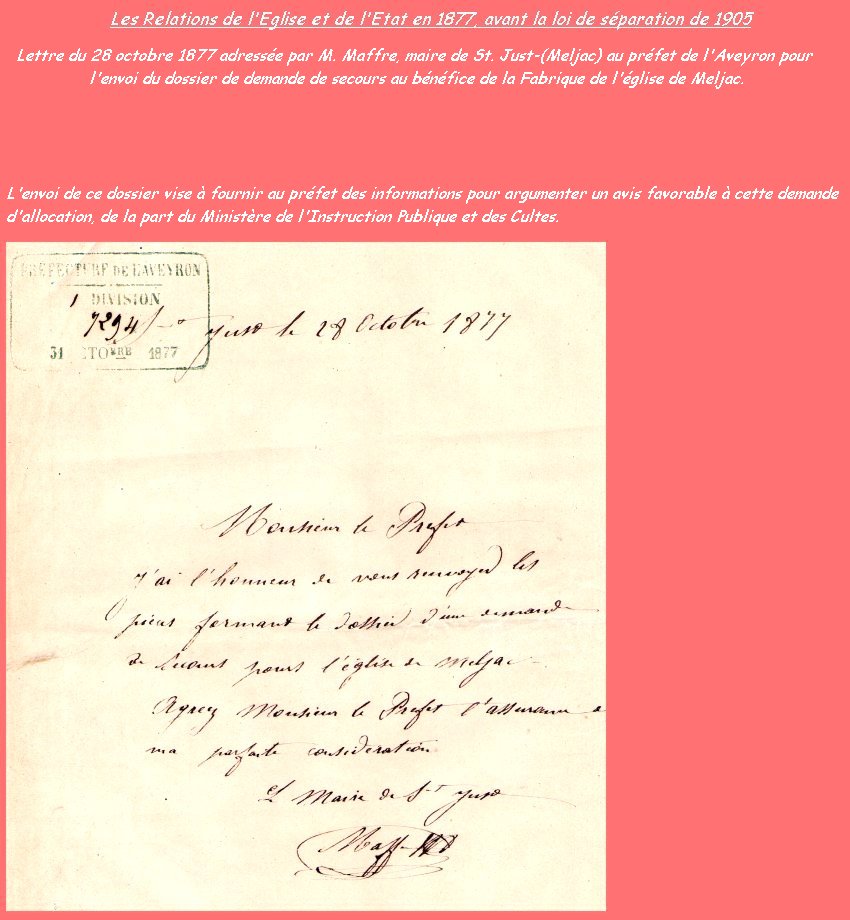 Les Relations de l'Eglise et de l'Etat en 1877, avant la loi de séparation de 1905
Lettre du 28 octobre 1877 adressée par M. Maffre, maire de St. Just-(Meljac) au préfet de l'Aveyron pour
l'envoi du dossier de demande de secours au bénéfice de la Fabrique de l'église de Meljac.
L'envoi de ce dossier vise à fournir au préfet des informations pour argumenter un avis favorable à cette demande
d'allocation, de la part du Ministère de l'Instruction Publique et des Cultes.
PRÉFECTURE DE L'AVEYRON
1 DIVISION
7294
31 OCTOBRE 1877
St Just le 28 Octobre 1877
Monsieur le Prefet
J'ai l'honneur de vous renvoyer les
pieces formant le dossier d'une demande
de secours pour l'église de Meljac
Agreez Monsieur le Prefet l'assurance de
ma parfaite consideration
Le Maire de St Just
Maffre